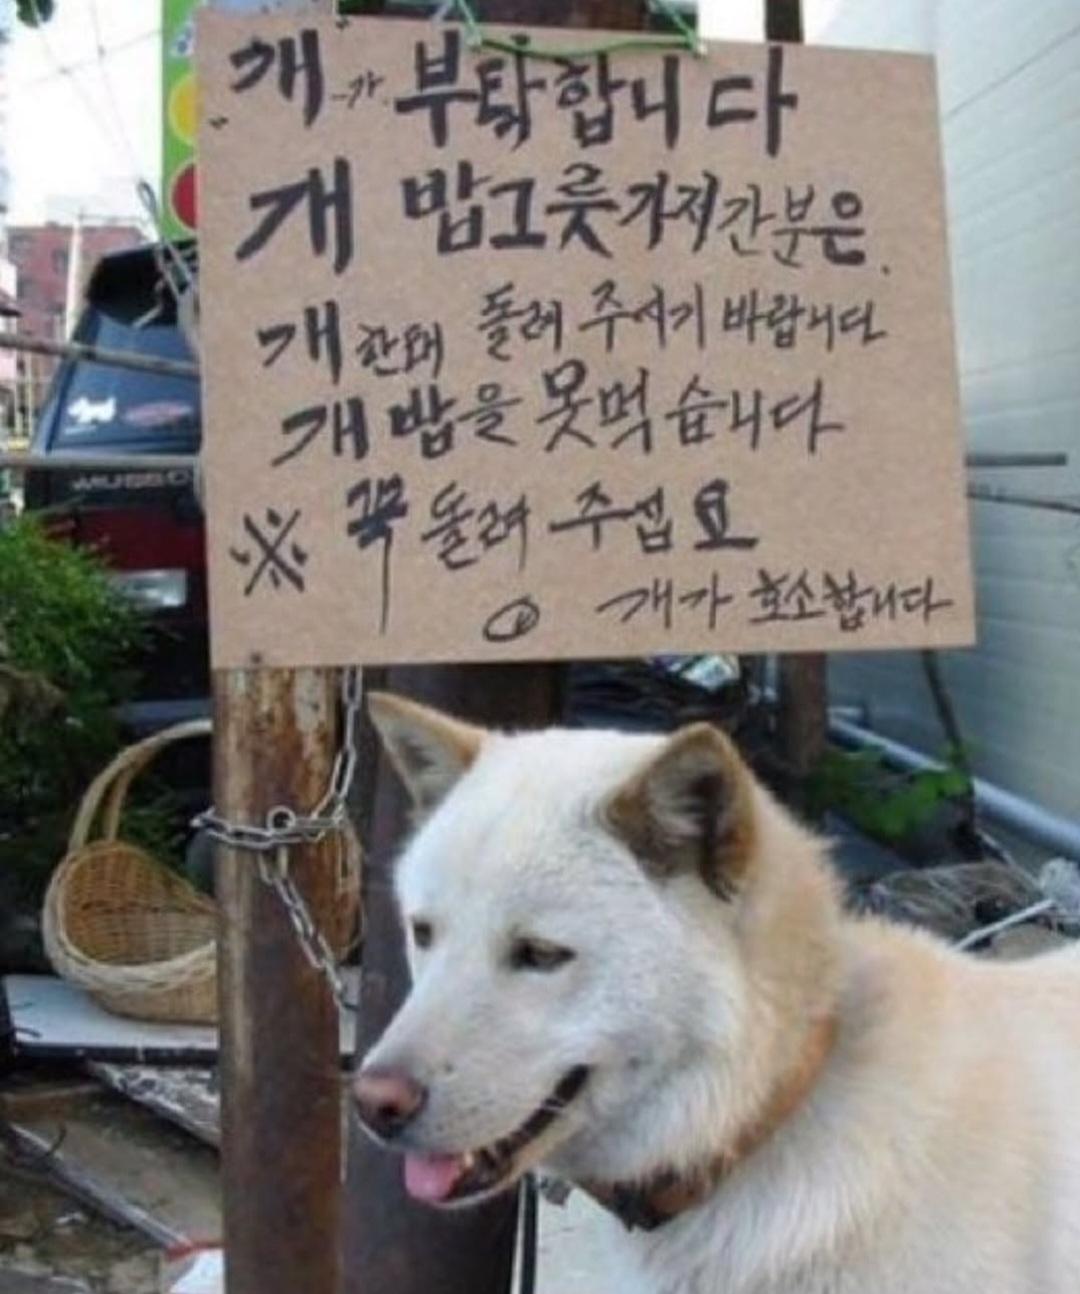 개가 부탁합니다
개 밥그릇 가져간분은.
개한테 돌려 주시기 바랍니다
개 밥을 못먹습니다
※ 꼭 돌려 주섭요
개가 호소합니다
MUSSO